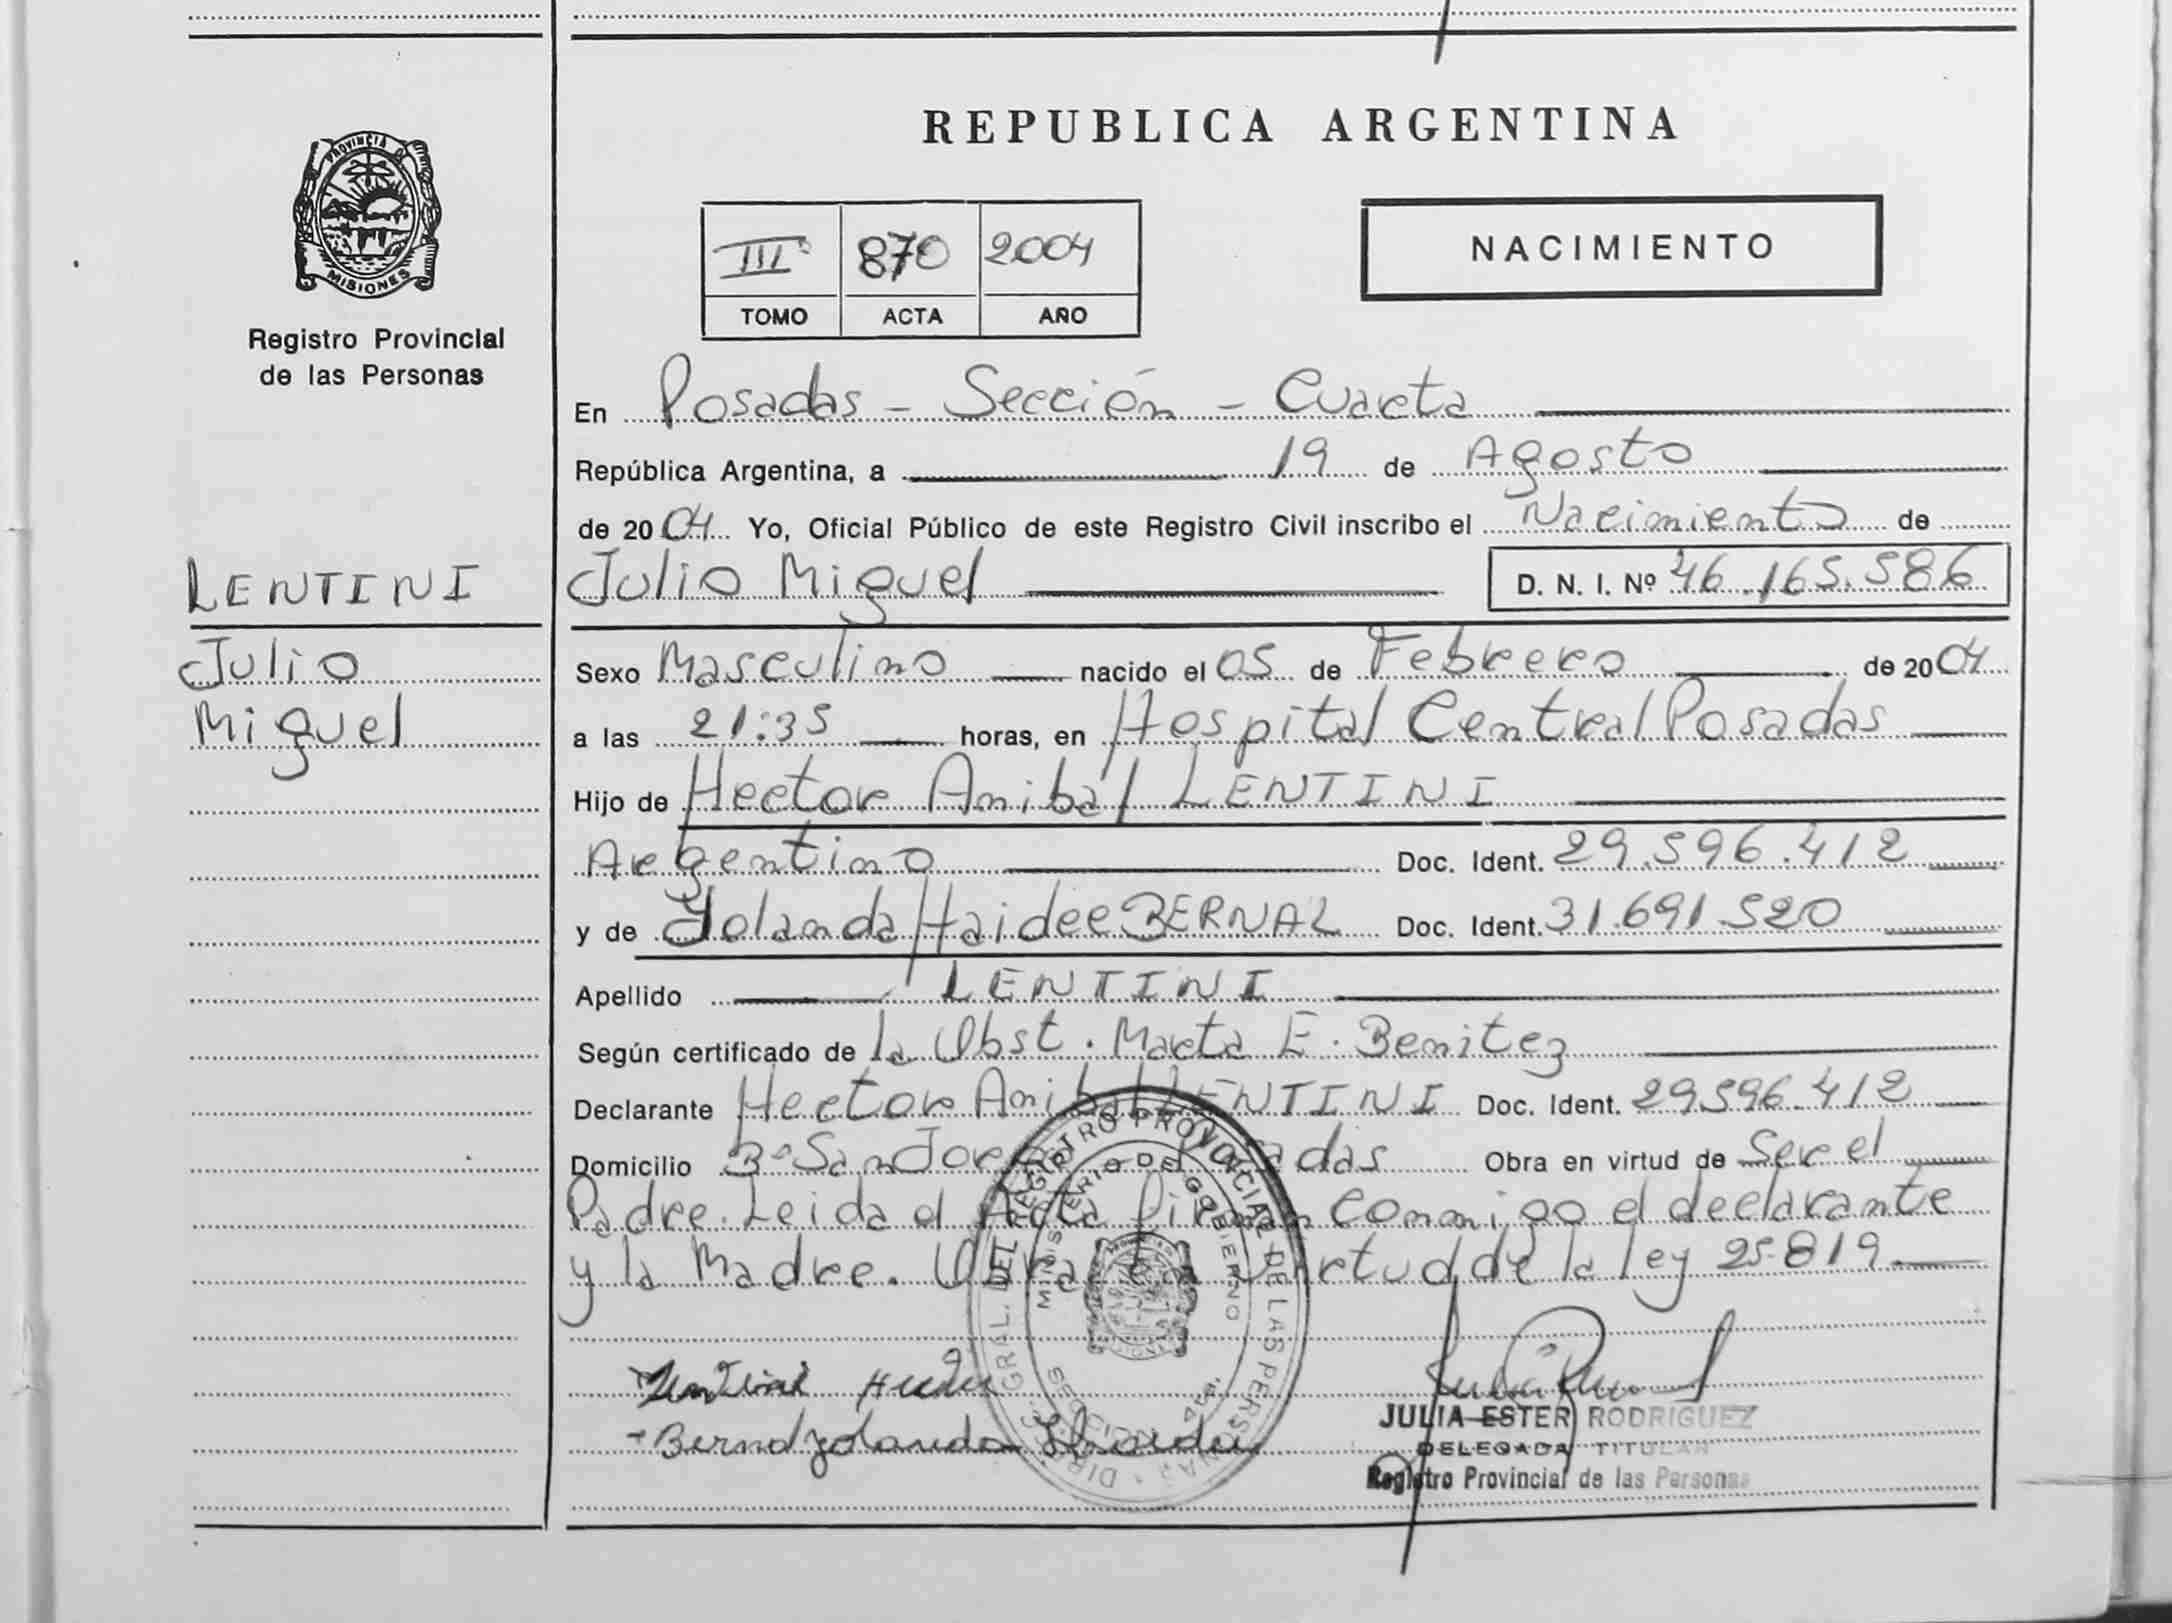 PROVINCIA D
MISIONES
Registro Provincial
de las Personas
LENTINI
Julio
Miguel
REPUBLICA ARGENTINA
III 870 2004
TOMO ACTA AÑO
NACIMIENTO
En Posadas - Sección - Cuarta
República Argentina, a 19 de Agosto
de 2004 Yo, Oficial Público de este Registro Civil inscribo el Nacimiento de
Julio Miguel D. N. I. Nº 46.165.586
Sexo Masculino nacido el 05 de Febrero de 2004
a las 21:35 horas, en Hospital Central Posadas
Hijo de Hector Anibal LENTINI
Argentino Doc. Ident. 29.596.412
y de Yolanda Haidee BERNAL Doc. Ident. 31.691.520
Apellido LENTINI
Según certificado de la Obst. Marta E. Benitez
Declarante Hector Anibal LENTINI Doc. Ident. 29596.412
Domicilio Bº San Jorge Posadas Obra en virtud de Ser el
Padre. Leida el Acta Firman conmigo el declarante
y la Madre. Obra en Virtud de la ley 25.819
DIR. GRAL. DEL REGISTRO PROVINCIAL DE LAS PERSONAS
MINISTERIO DE GOBIERNO
Lentini Hector
Bernal Yolanda Haidee
JULIA ESTER RODRIGUEZ
DELEGADA TITULAR
Registro Provincial de las Personas